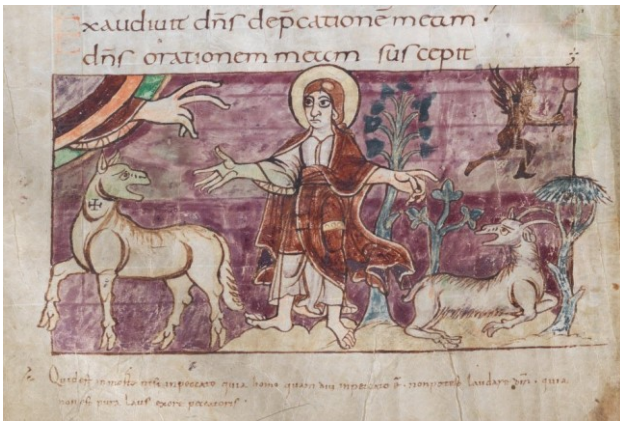 xaudiuit dn̄s dep̄cationē meam·
dn̄s orationem meam suscepit
Quid est in morte nisi in peccato quia homo quando in peccato ē· non potest laudare dn̄m· quia
non est pura laus ex ore peccatoris·